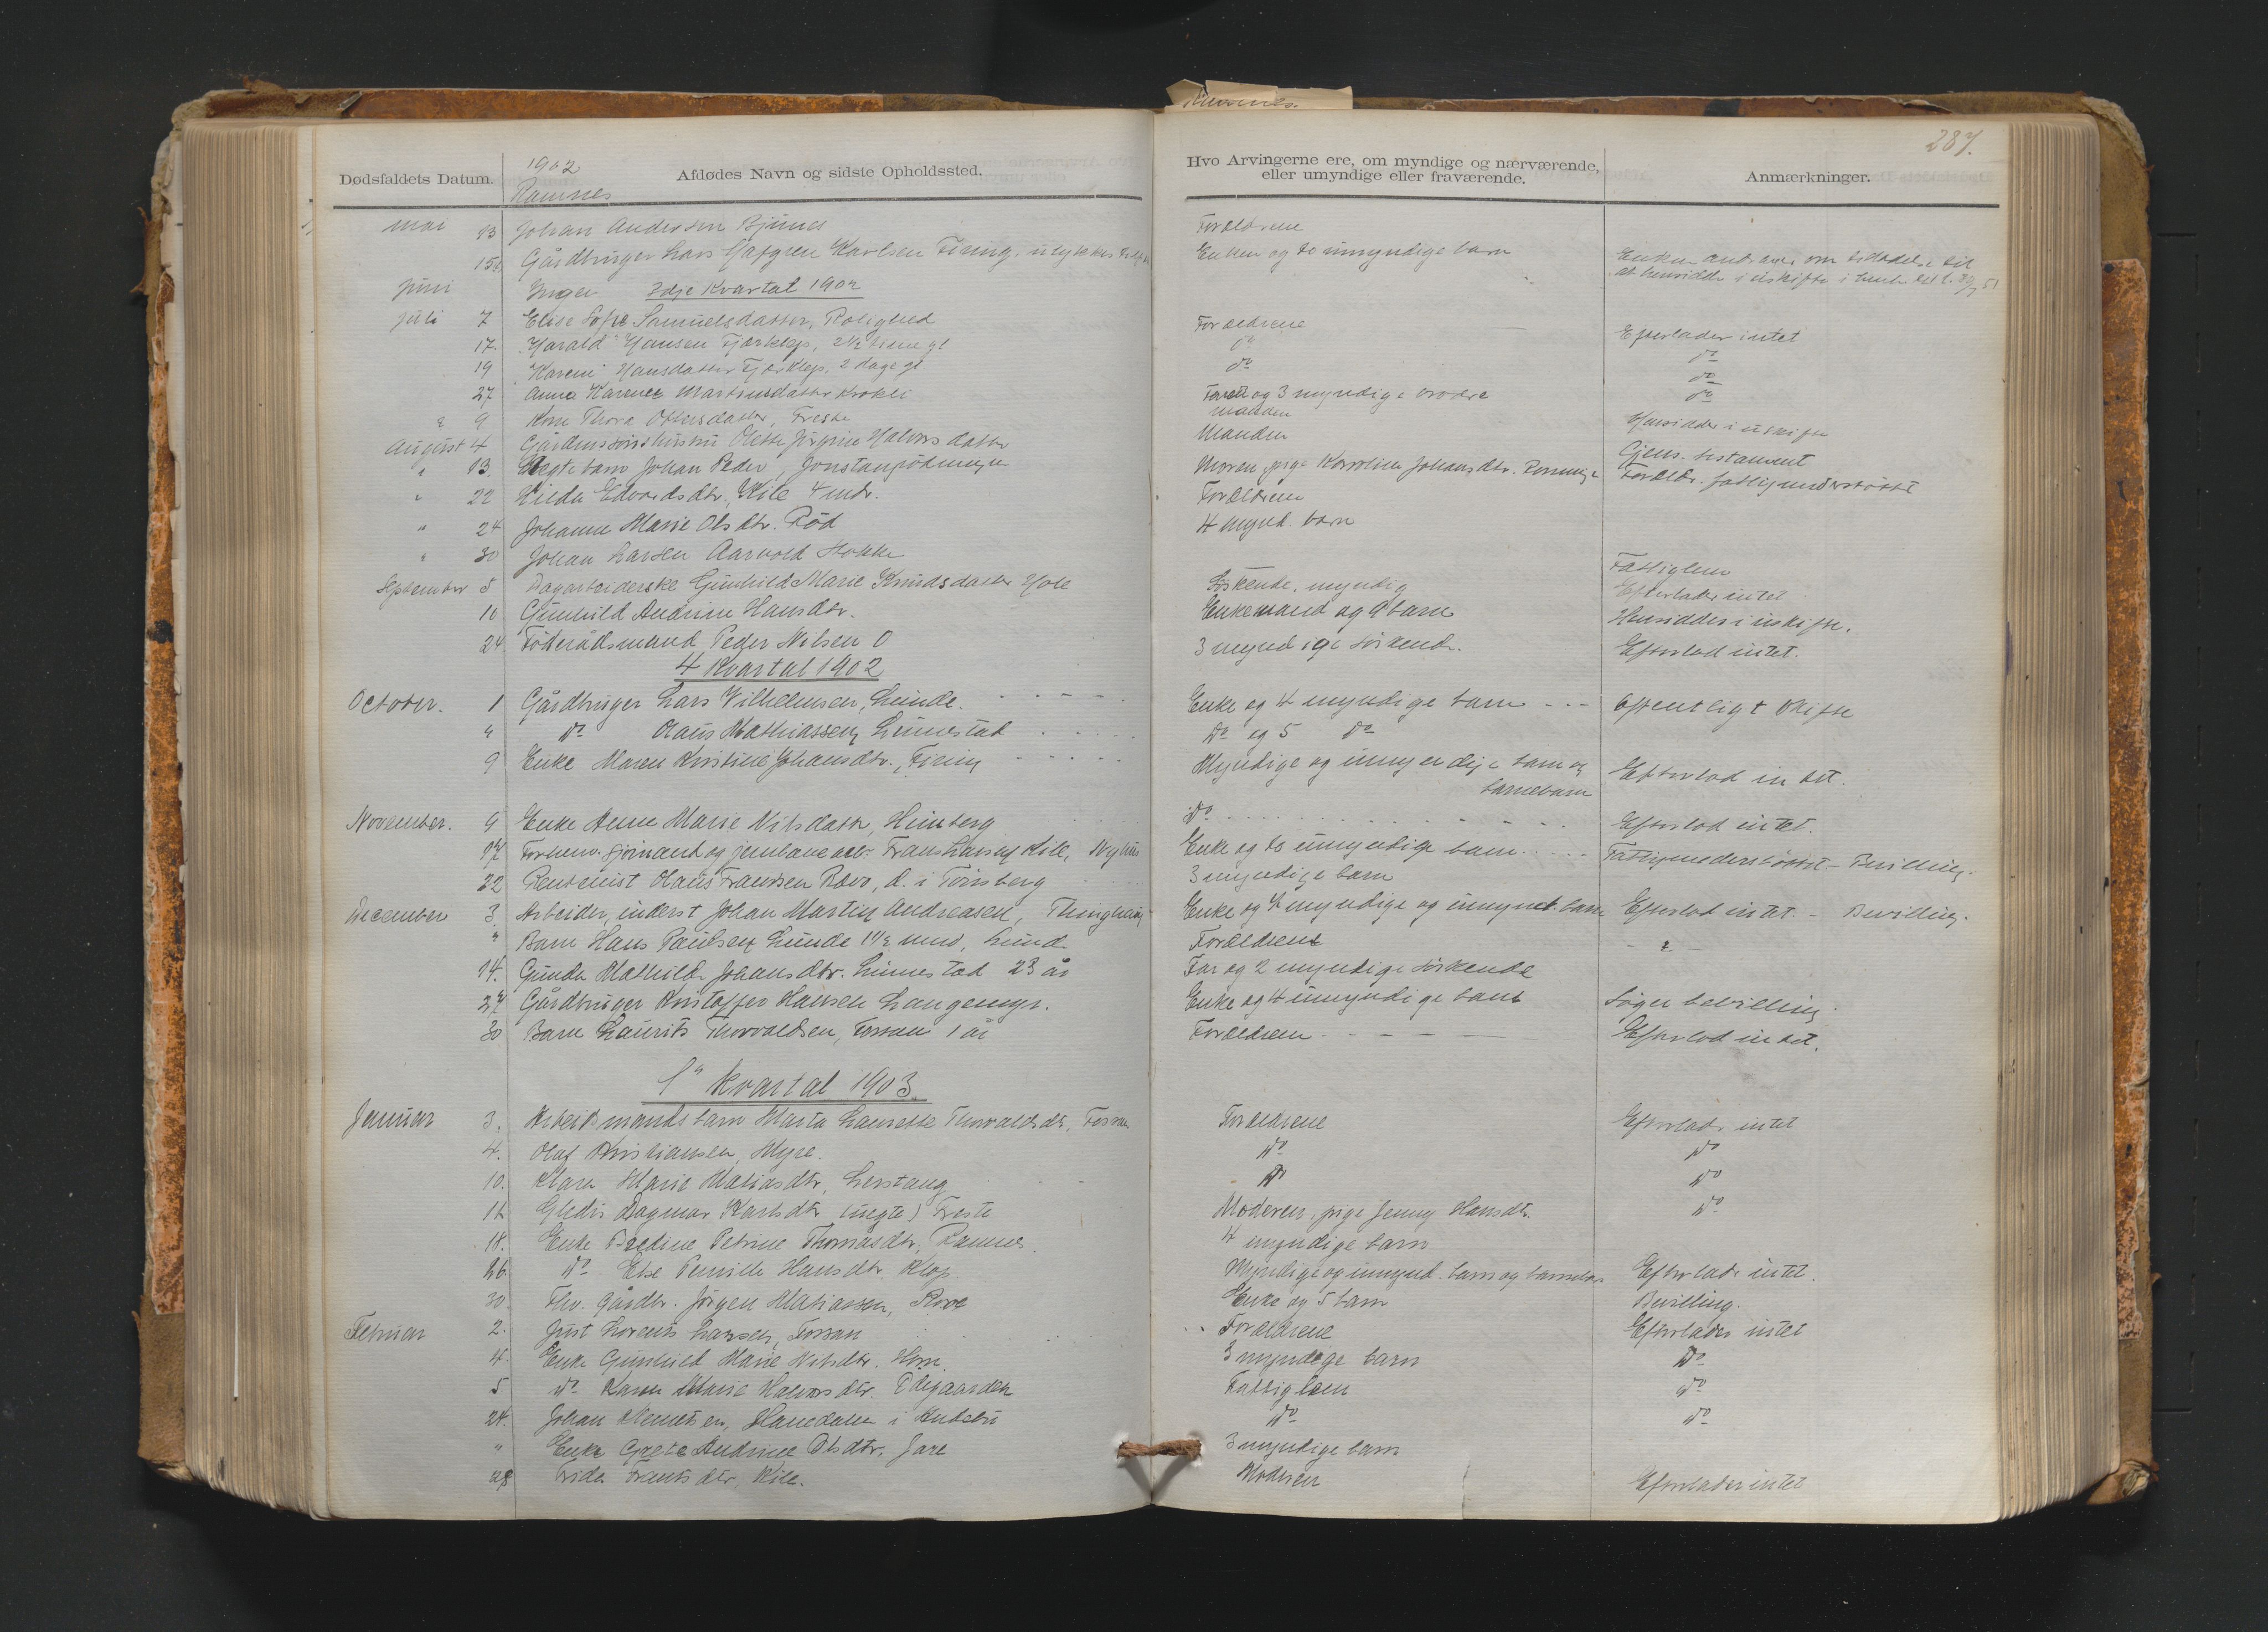 Ramnes.
287.
Dødsfaldets Datum.
1902
Ramnes
Afdødes Navn og sidste Opholdssted.
Hvo Arvingerne ere, om myndige og nærværende, eller umyndige eller fraværende.
Anmærkninger.
Mai 13 Johan Andersen Bjunes Forældrene
15 Gårdbruger Lars Hafgren Karlsen Firing, Enken og to umyndige barn Enken om tilladelse til
at hensidde i uskifte i
Juni Ingen 3dje Kvartal 1902
Juli 7 Elise Sofie Samuelsdatter, Rolighed Forældrene Efterlader intet
17. "Harald" Hansen Fjærklep, 2½ time gl do do
19 "Karen" Hansdatter Fjærklep, 2 dage gl. do do
27 Anna Karence Martinsdatter Krokli og 3 myndige do
" 9 Kone Thora Ottersdatter, Freste manden Hensidder i uskifte
August 4 Gårdmandshustru Olette Jørgine Halvorsdatter Manden Gjens. testament
" 13 Uægte barn Johan Peder, Moren, pige Karoline Johansdtr. Forældr. fattigunderstøttet
" 22 Hilda Edvardsdtr, Kile 4 mdr. Forældrene
" 24 Johanne Marie Olsdtr. Röd 4 mynd. barn
" 30 Johan Larsen Aarvold Fattiglem
September 5 Dagarbeiderske Gunhild Marie Knudsdatter Hole Söskende, myndig Efterlader intet
10 Gunhild Andrine Hansdtr. Enkemand og 9 barn Hensidder i uskifte.
24 Föderådsmand Peder Nilsen O 3 myndige söskende. Efterlod intet.
4 Kvartal 1902
October. 1 Gårdbruger Lars Vilhelmsen, Lunde. Enke og 4 myndige barn Offentligt skifte
4 do Olaus Mathiassen, Linnestad do og 5 do
9 Enke Maren Kristine Johansdtr., Firing Myndige og umyndige barn og
barnebarn Efterlod intet.
November. 9 Enke Anne Marie Nilsdatter, Himberg do Efterlod intet.
17 Forhenv. sjömand og jernbanearb. Frans Hansen Kile, Nyhus Enke og to umyndige barn Fattigunderstöttet - Bevilling.
22 Rentenist Olaus Frantsen Rovo, d. i Tönsberg 3 myndige barn
December 3. Arbeider, inderst Johan Martin Andreasen, Thinghaug Enke og 4 myndige og umynd. barn Efterlod intet. - Bevilling.
" Barn Hans Paulsen Lunde 1½ mnd, Lund Forældrene - " -
14. Gunda Mathilde Johansdtr. Linnestad 23 år Far og 2 myndige söskende
27 Gårdbruger Kristoffer Hansen Langemyr. Enke og 4 umyndige barn Söger bevilling.
30 Barn Laurits Thorvaldsen, Fossan 1 år Forældrene Efterlod intet.
1ste Kvartal 1903.
Januar 3. Arbeidsmands barn Marta Laurette Thorvaldsdtr, Fossan Forældrene Efterlader intet
4. Olaf Kristiansen, Myre. do do
10. Klara Marie Matiasdtr, Lerstang do do
12 Gledis Dagmar Karlsdtr (uægte) Freste Moderen, pige Jenny Hansdtr. do
18. Enke Bredine Petrine Thomasdtr, Ramnes 4 myndige barn
26. do Else Pernille Hansdtr Klop. Myndige og umynd. barn og barnebarn Efterlader intet.
30. Fhv. gårdbr. Jörgen Matiassen, Rove Enke og 5 barn Bevilling.
Februar 2. Just Lorents Larsen, Fossan Forældrene Efterlader intet
4. Enke Gunhild Marie Nilsdtr. Horn. 3 myndige barn do
5 do Karen Marie Halvorsdtr. Ödegaarden Fattiglem do
24. Johan Klemetsen, Hanedalen i Andebu do do
" Enke Grete Andrine Olsdtr, Jare 3 myndige barn
28 Frida Frantsdtr, Kile. Moderen Efterlader intet